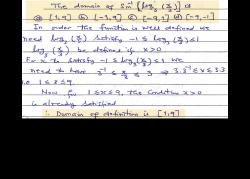 The domain of Sin⁻¹ [log₃ (x/3)] is
(a) [1,9] (b) [-1,9] (c) [-9,1] (d) [-9,-1]
In order the function is well defined we
need log₃ (x/3) satisfy -1 ≤ log₃(x/3) ≤ 1
log₃ (x/3) be defined if x>0
For x to satisfy -1 ≤ log₃(x/3) ≤ 1 we
need to have 3⁻¹ ≤ x/3 ≤ 3 ⇒ 3.3⁻¹ ≤ x ≤ 3.3
i.e 1 ≤ x ≤ 9.
Now 1 ≤ x ≤ 9, the condition x>0
is already satisfied
∴ Domain of definition is [1,9]